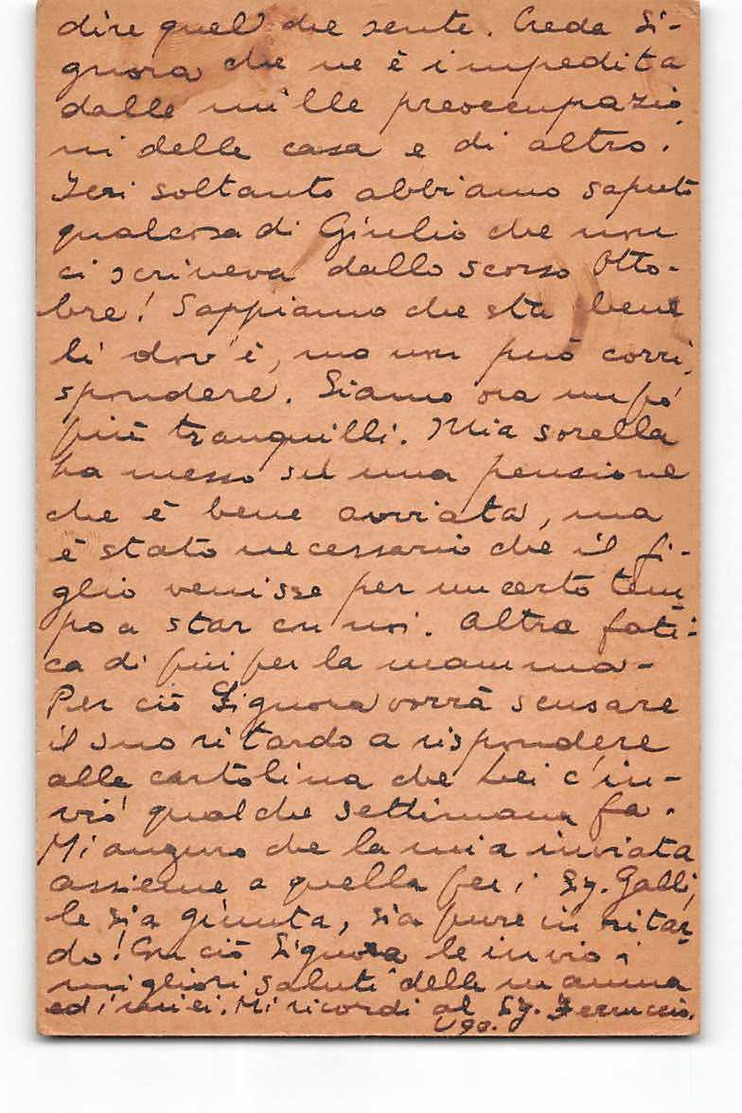 dire quel che sente. Creda Si-
gnora che ne è impedita
dalle mille preoccupazio
ni della casa e di altro.
Ieri soltanto abbiamo saputo
qualcosa di Giulio che non
ci scriveva dallo scorso Otto-
bre! Sappiamo che sta bene
lì dov'è, ma non può corri,
spondere. Siamo ora un pò
più tranquilli. Mia sorella
ha messo su una pensione
che è bene avviata, ma
è stato necessario che il fi-
glio venisse per un certo tem
po a star con noi. Altra fati-
ca di più per la mamma-
Per ciò Signora vorrà scusare
il suo ritardo a rispondere
alla cartolina che Lei c'in-
viò qualche settimana fa.
Mi auguro che la mia inviata
assieme a quella per i Sg. Galli,
le sia giunta, sia pure in ritar-
do! Con ciò Signora le invio i
migliori saluti della mamma
ed i miei. Mi ricordi al Sg. Ferruccio.
Ugo.